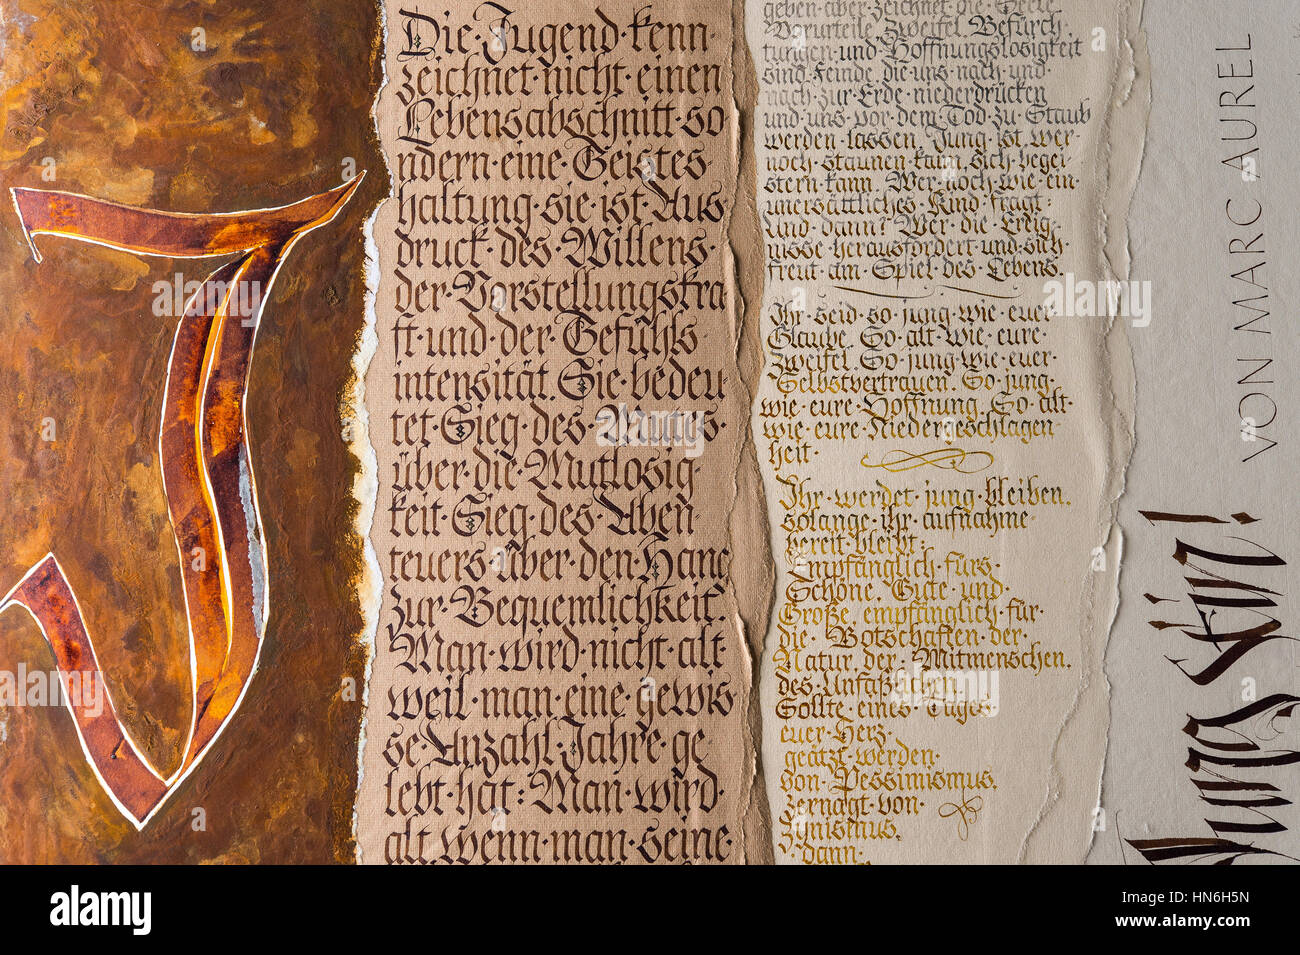 J
Die·Jugend·kenn-
zeichnet·nicht·einen
Lebensabschnitt·so
ndern·eine·Geistes
haltung·sie·ist·Aus
druck·des·Willens·
der·Vorstellungskra
ft·und·der·Gefühls·
intensität.Sie·bedeu
tet·Sieg·des·Mutes·
über·die·Mutlosig
keit·Sieg·des·Aben
teuers·über·den·Hang
zur·Bequemlichkeit·
Man·wird·nicht·alt·
weil·man·eine·gewis
se·Anzahl·Jahre·ge
lebt·hat:Man·wird
alt·wenn·man·seine·
geben aber zeichnet die Seele
Vorurteile Zweifel Befürch
tungen und Hoffnungslosigkeit
sind Feinde die uns nach und
nach zur Erde niederdrücken
und uns vor dem Tod zu Staub
werden lassen Jung ist wer
noch staunen kann sich begei
stern kann. Wer noch wie ein
unersättliches Kind fragt:
Und dann? Wer die Ereig
nisse herausfordert und sich
freut am Spiel des Lebens.
Ihr seid so jung wie euer
Glaube. So alt wie eure
Zweifel. So jung wie euer
Selbstvertrauen. So jung
wie eure Hoffnung. So alt
wie eure Niedergeschlagen
heit.
Ihr werdet jung bleiben.
solange ihr aufnahme
bereit bleibt:
Empfänglich fürs
Schöne. Gute und
Große, empfänglich für
die Botschaften der
Natur. der Mitmenschen.
des Unfaßlichen.
Sollte eines Tages
euer Herz
geätzt werden
von Pessimismus.
zernagt von
Zynismus.
dann
Jung sein!
VON MARC AUREL
alamy
alamy
Image ID: HN6H5N
www.alamy.com